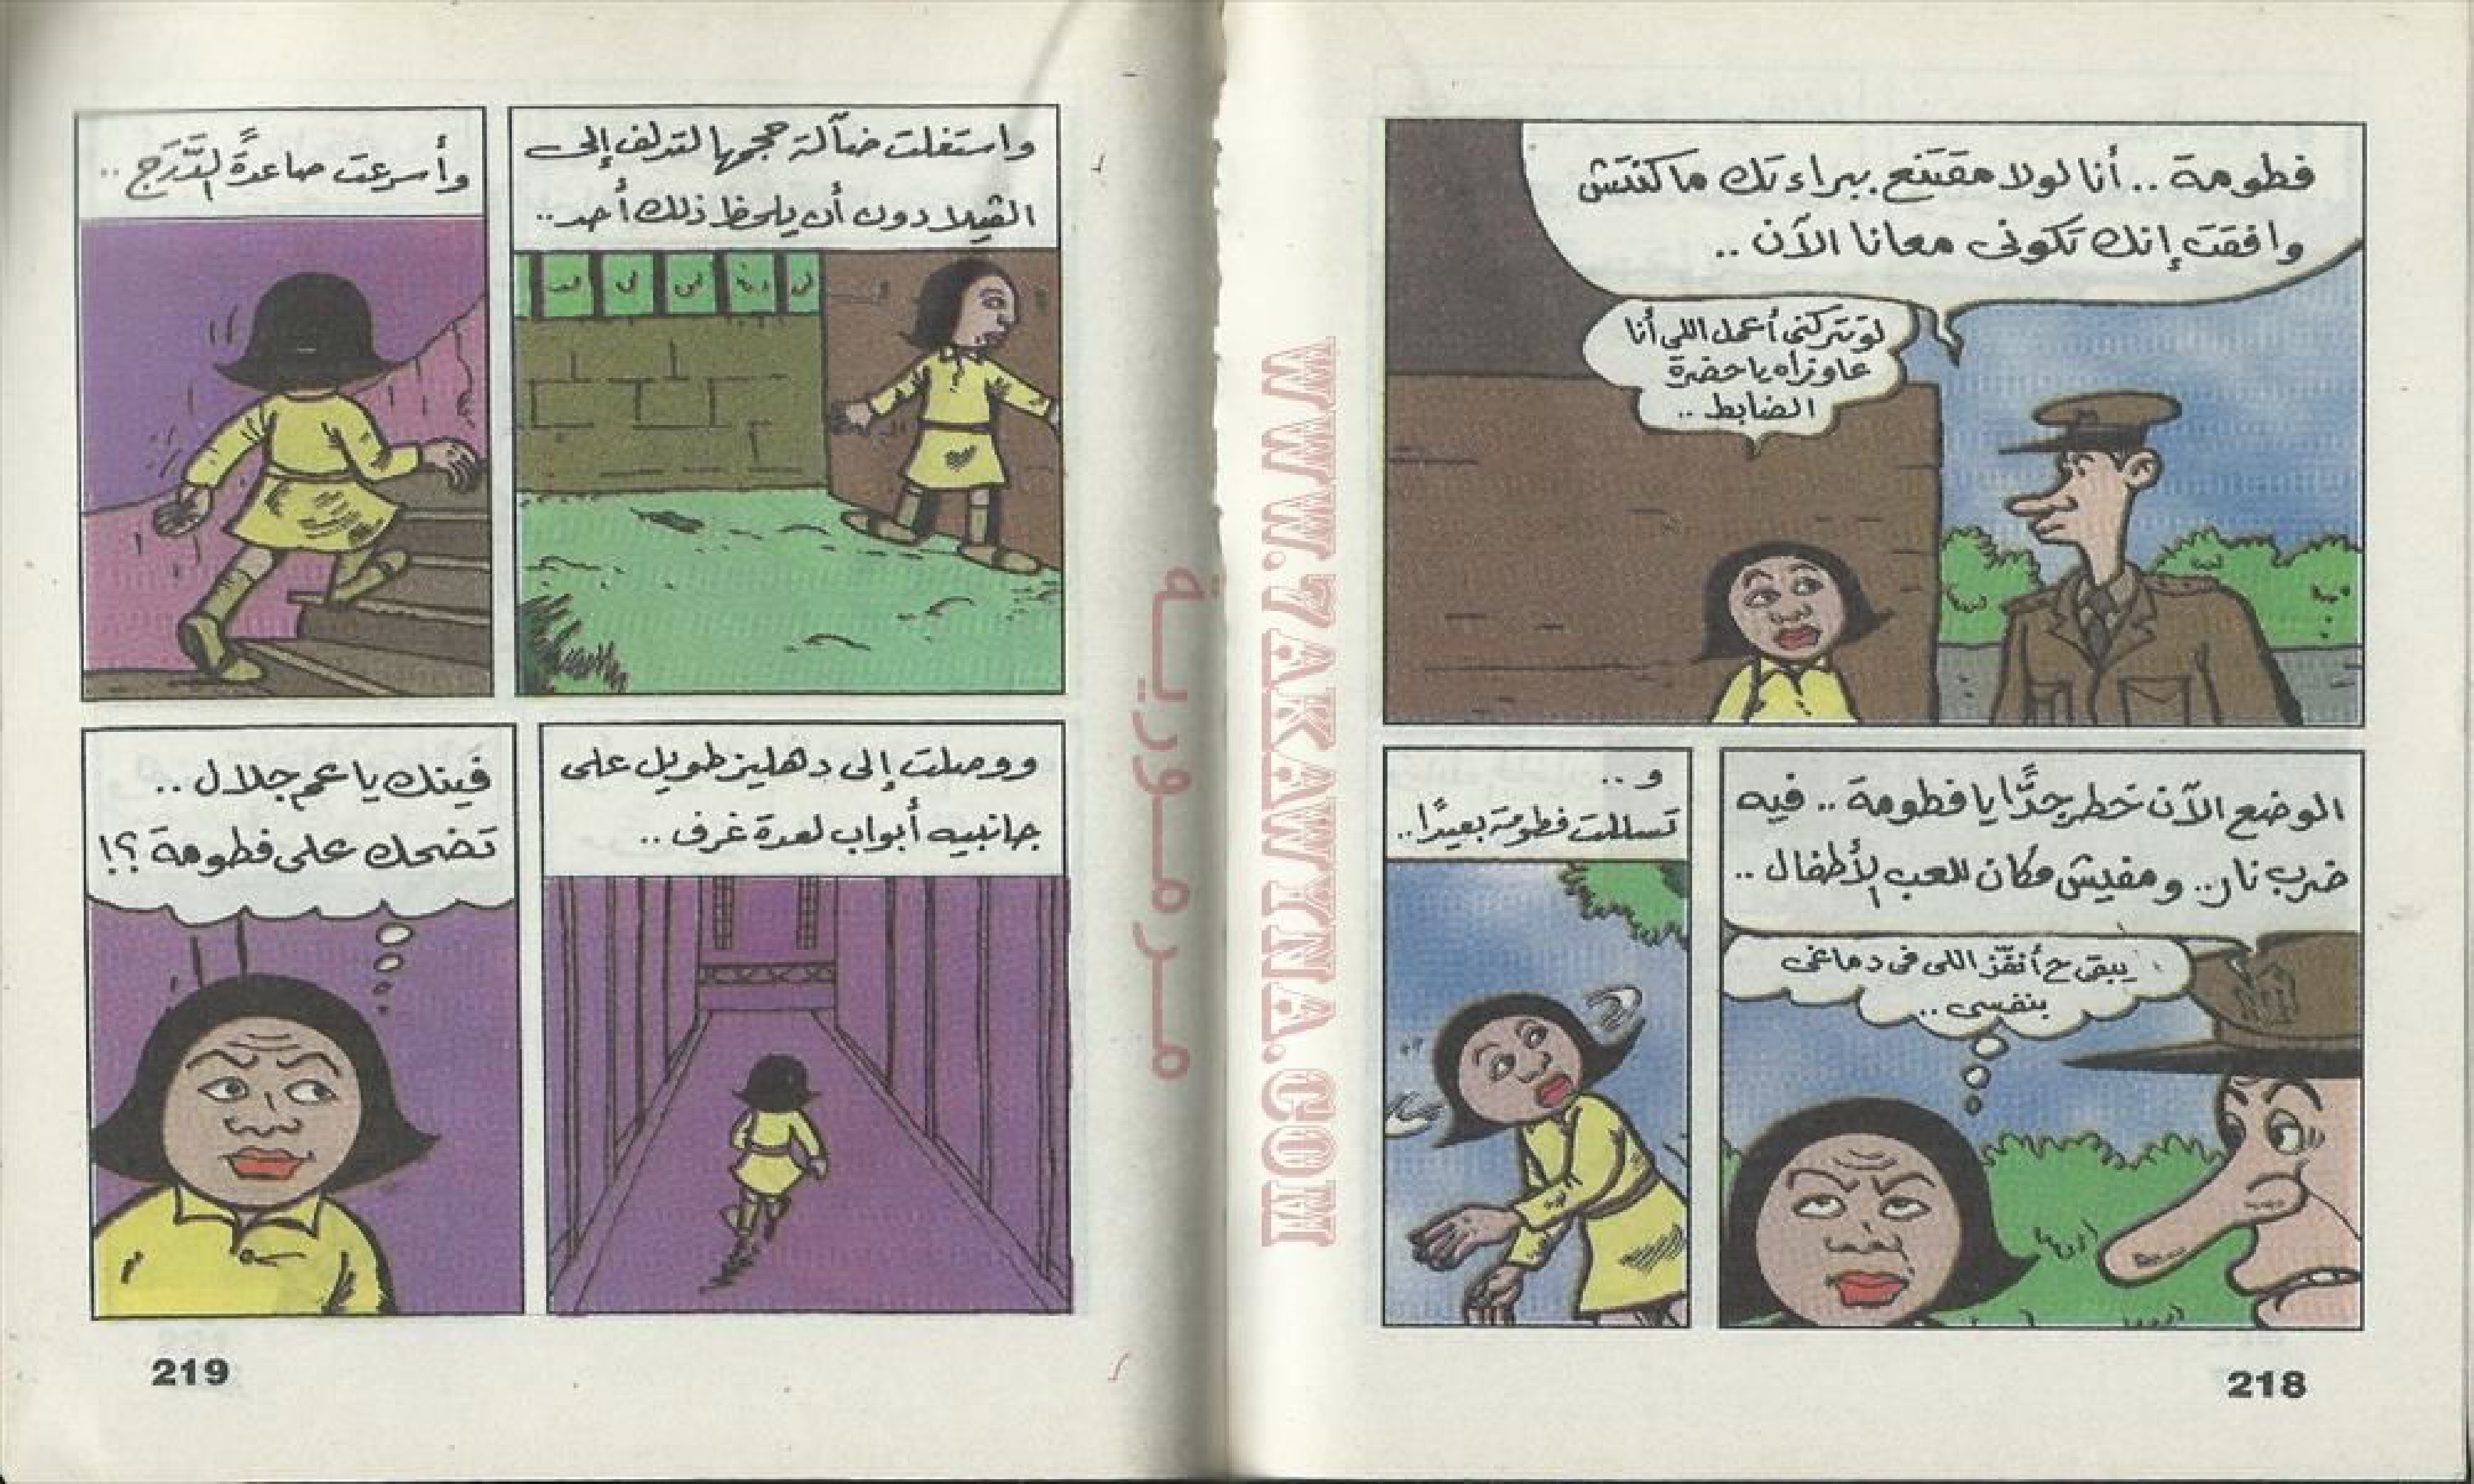 فطومة .. أنا لولا مقتنع ببراءتك ماكنتش
وافقت إنك تكونى معانا الآن ..
لو تتركنى أعمل اللى أنا
عاوزاه يا حضرة
الضابط ..
الوضع الآن خطر جدًّا يا فطومة .. فيه
ضرب نار .. ومفيش مكان للعب الأطفال ..
يبقى ح أنفّذ اللى فى دماغى
بنفسى ..
و ..
تسللت فطومة بعيدًا ..
218
WWW.7AKAWINA.COM
مرمورية
واستغلت ضآلة حجمها لتدلف إلى
الڤيلا دون أن يلحظ ذلك أحد ..
وأسرعت صاعدةً الدَّرَج ..
ووصلت إلى دهليز طويل على
جانبيه أبواب لعدة غرف ..
فينك يا عم جلال ..
تضحك على فطومة ؟!
219